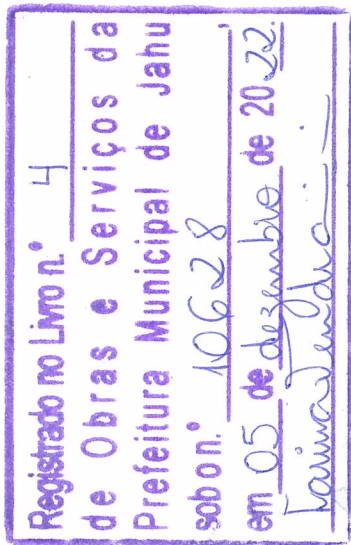 Registrado no Livro n.º 4
de Obras e Serviços da
Prefeitura Municipal de Jahu
sob o n.º 10628
em 05 de dezembro de 2022.